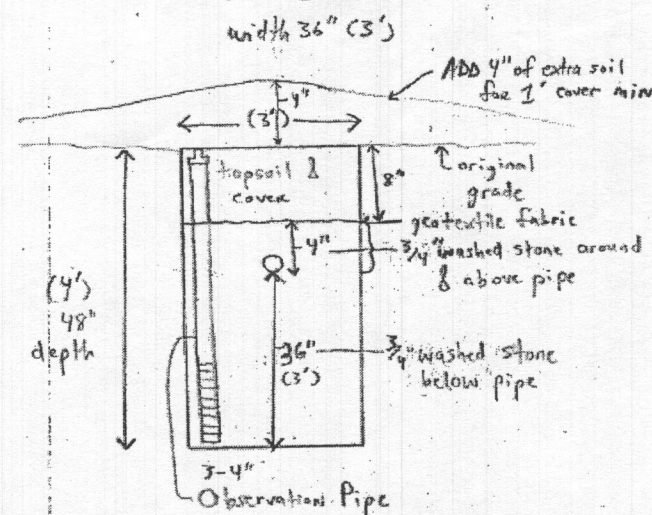 width 36" (3')
ADD 4" of extra soil
for 1' cover min
4"
(3')
topsoil &
cover
8"
original
grade
geotextile fabric
4"
3/4" washed stone around
& above pipe
(4')
48"
depth
36"
(3')
3/4" washed stone
below pipe
3-4"
Observation Pipe